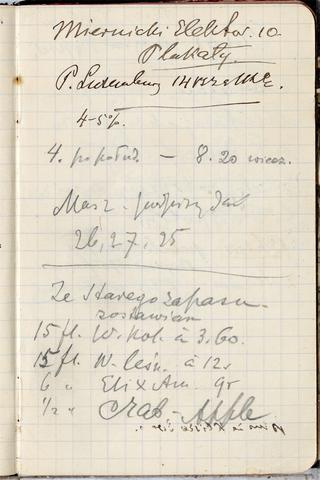 Miernicki Elektor. 10.
Plakaty.
P. Luxenburg 14
4-5%.
4. popołud. — 8.20 wiecz.
Masz.
26, 27, 25
Ze starego zapasu
zostawiam
15 fl. W. kol. à 3.60.
15 fl. W. leśn. à 12
6 " Elix Am. gr
1/2 " Crab-Apple